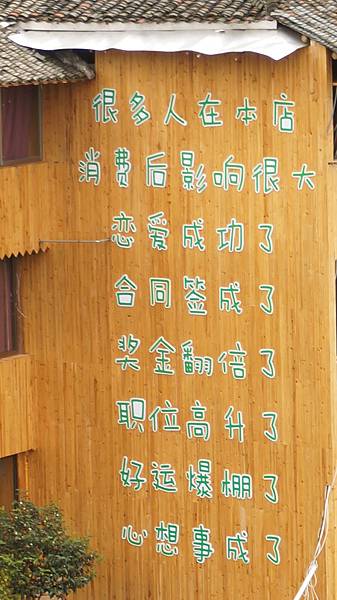 很多人在本店
消费后影响很大
恋爱成功了
合同签成了
奖金翻倍了
职位高升了
好运爆棚了
心想事成了